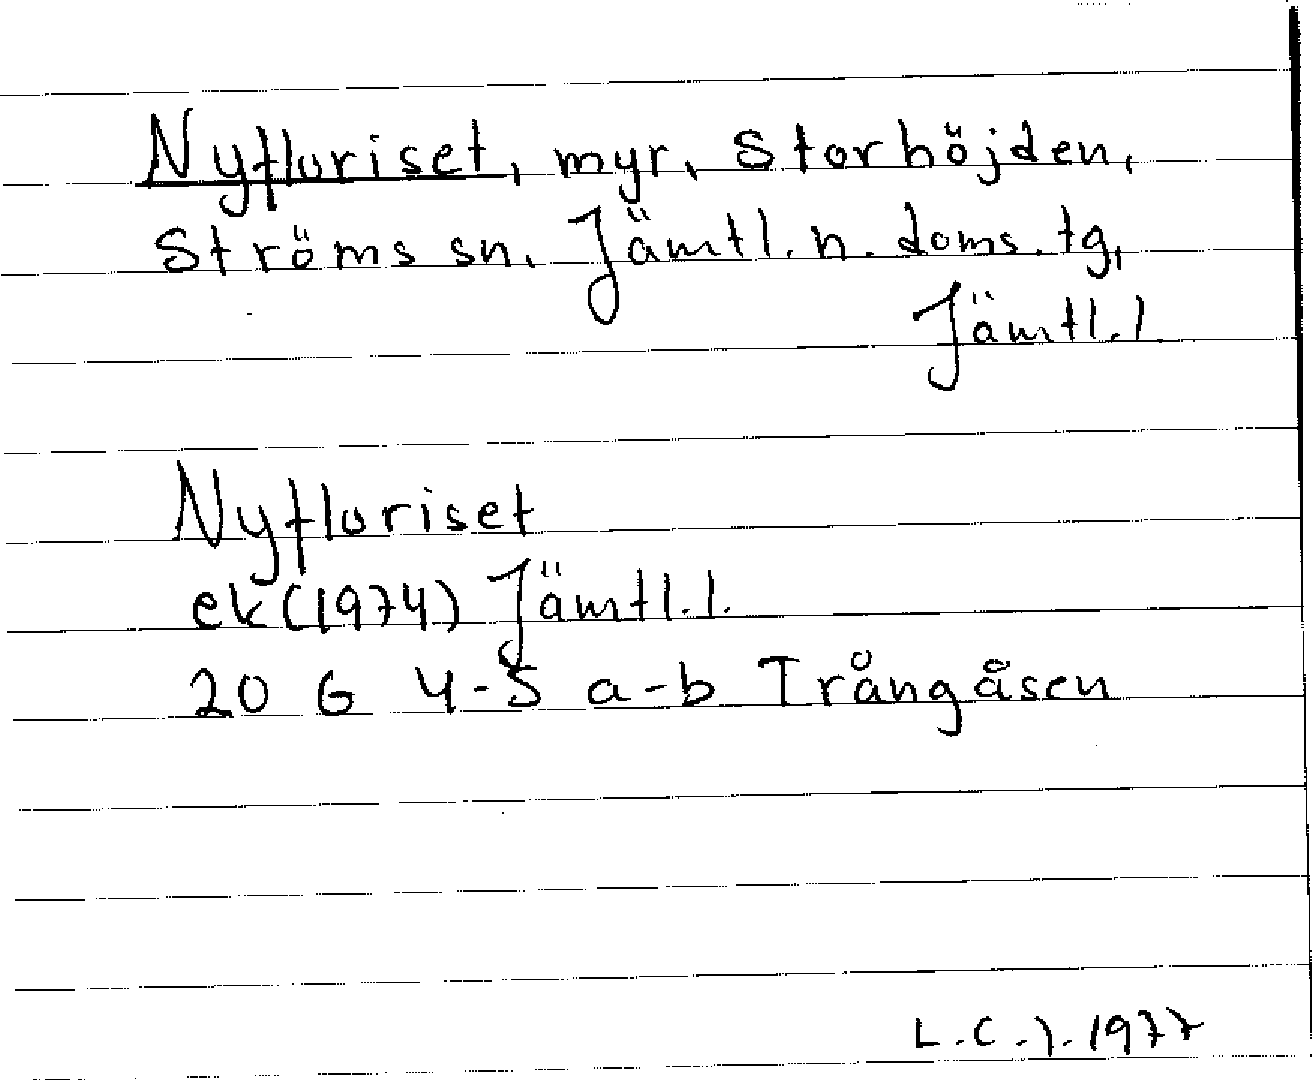 Nyfluriset, myr, Storhöjden,
Ströms sn. Jämtl. n. doms. tg,
Jämtl. l
Nyfluriset
ek (1974) Jämtl. l.
20 G 4-5 a-b Trångåsen
L.C.J. 1977